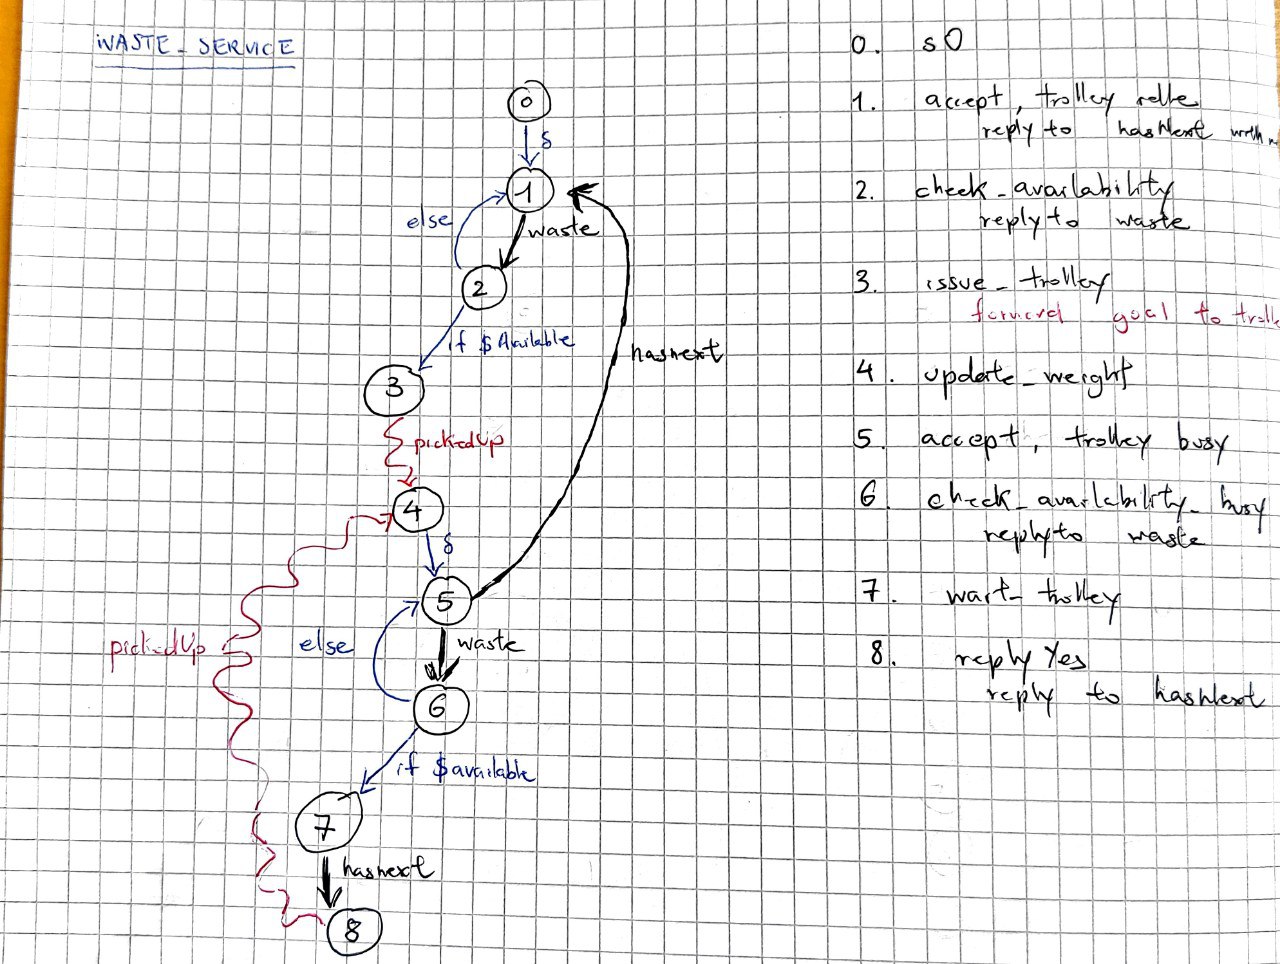 WASTE_SERVICE
0
δ
1
else
waste
2
if $Available
hasnext
3
pickedUp
4
δ
5
pickedUp
else
waste
6
if $available
7
hasnext
8
0. s0
1. accept, trolley
reply to hasNext with
2. check_availability
reply to waste
3. issue_trolley
forward goal to troll
4. update_weight
5. accept, trolley busy
6 check_availability_busy
reply to waste
7. wait_trolley
8. reply Yes
reply to hasNext